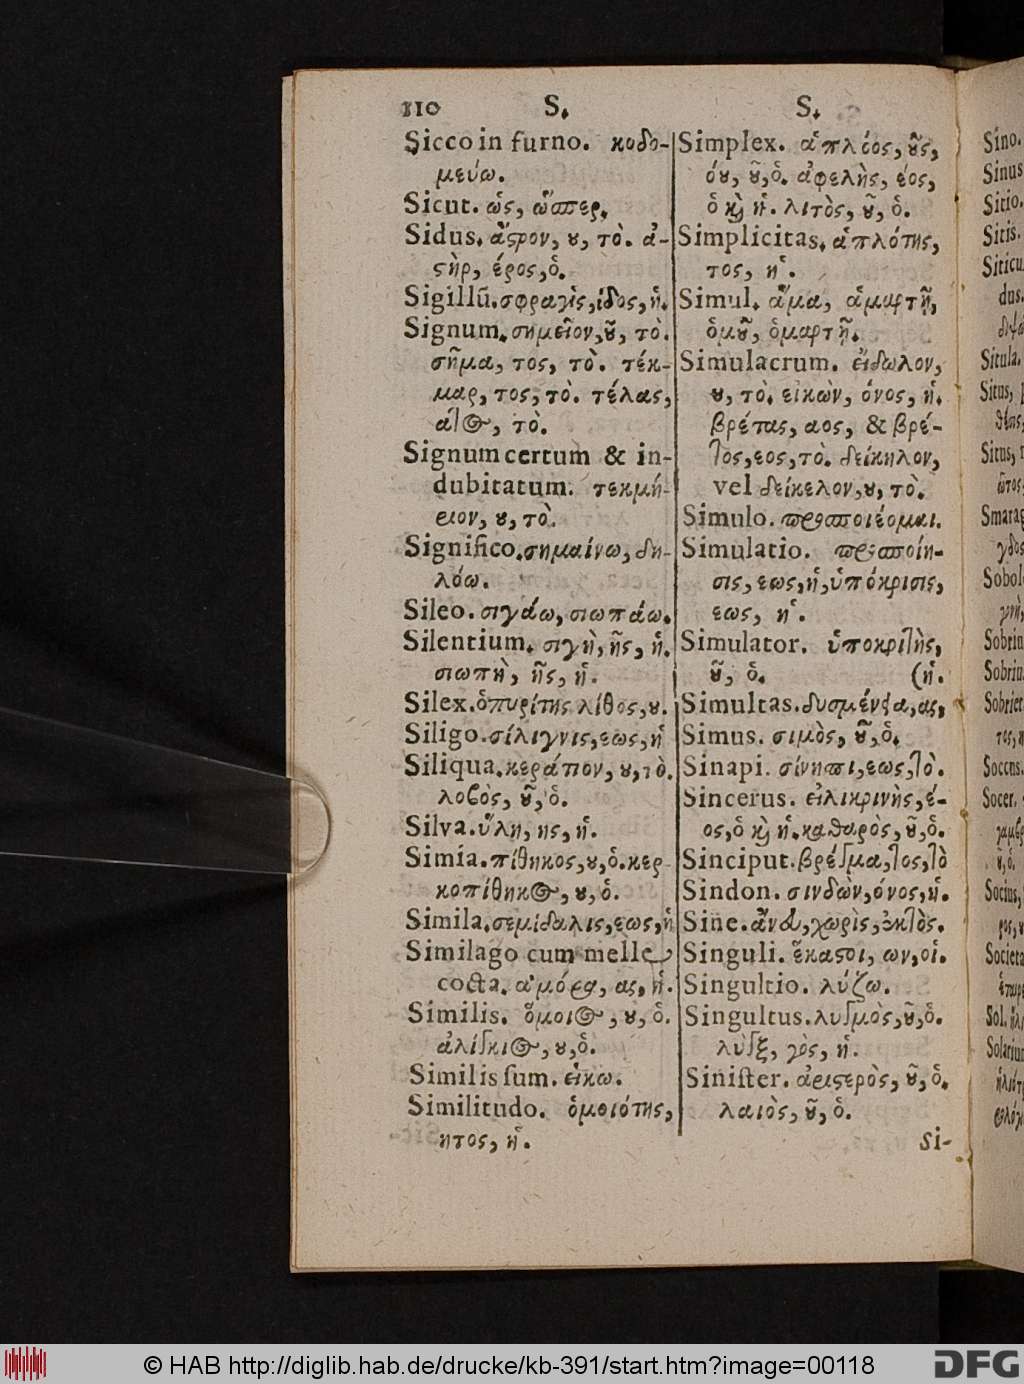 110 S. S.
Sicco in furno. κοδο-
μεύω.
Sicut. ὡς, ὥσπερ.
Sidus. ἄςρον, ȣ, τὸ. ἀ-
ςὴρ, έρος, ὁ.
Sigillũ. σφραγὶς, ίδος, ἡ.
Signum. σημεῖον, ȣ͂, τὸ.
σῆμα, τος, τὸ. τέκ-
μαρ, τος, τὸ. τέλας,
ατος, τὸ.
Signum certum & in-
dubitatum. τεκμή-
ριον, ȣ, τὸ.
Significo. σημαίνω, δη-
λόω.
Sileo. σιγάω, σιωπάω.
Silentium. σιγὴ, ῆς, ἡ.
σιωπὴ, ῆς, ἡ.
Silex. ὁ πυρίτης λίθος, ȣ.
Siligo. σίλιγνις, εως, ἡ
Siliqua. κεράτιον, ȣ, τὸ.
λοβὸς, ȣ͂, ὁ.
Silva. ὕλη, ης, ἡ.
Simia. πίθηκος, ȣ, ὁ. κερ-
κοπίθηκος, ȣ, ὁ.
Simila. σεμίδαλις, εως, ἡ
Similago cum melle
cocta. ἀμόρα, ας, ἡ.
Similis. ὅμοιος, ȣ, ὁ.
ἀλίγκιος, ȣ, ὁ.
Similis sum. εἴκω.
Similitudo. ὁμοιότης,
ητος, ἡ.
Simplex. ἁπλέος, ȣ͂ς,
όυ, ȣ͂, ὁ. ἀφελὴς, έος,
ὁ κὶ ἡ. λιτὸς, ȣ͂, ὁ.
Simplicitas. ἁπλότης,
τος, ἡ.
Simul. ἅμα, ἁμαρτῆ,
ὁμȣ͂, ὁμαρτῆ.
Simulacrum. εἴδωλον,
ȣ, τὸ. εἰκὼν, όνος, ἡ.
βρέτας, αος, & βρέ-
τος, εος, τὸ. δείκηλον,
vel δείκελον, ȣ, τὸ.
Simulo. προσποιέομαι.
Simulatio. προσποίη-
σις, εως, ἡ, ὑπόκρισις,
εως, ἡ.
Simulator. ὑποκριτὴς,
ȣ͂, ὁ. (ἡ.
Simultas. δυσμένεια, ας,
Simus. σιμὸς, ȣ͂, ὁ.
Sinapi. σίνηπι, εως, τὸ.
Sincerus. εἰλικρινὴς, έ-
ος, ὁ κὶ ἡ. καθαρὸς, ȣ͂, ὁ.
Sinciput. βρέγμα, τος, τὸ
Sindon. σινδὼν, όνος, ἡ.
Sine. ἄνευ, χωρὶς, ἐκτὸς.
Singuli. ἕκαςοι, ων, οἱ.
Singultio. λύζω.
Singultus. λυγμὸς, ȣ͂, ὁ.
λὺγξ, γὸς, ἡ.
Sinister. ἀριςερὸς, ȣ͂, ὁ.
λαιὸς, ȣ͂, ὁ.
Si-
Sino.
Sinus
Sitio.
Sitis.
Siticu
dus.
Situla.
Situs,
Situs,
Smarag
γδος
Sobol
Sobrin
Sobrin
Sobriet
Soccus.
Socer.
Socius,
Societa
Sol. ἥλι
Solarium
© HAB http://diglib.hab.de/drucke/kb-391/start.htm?image=00118
DFG